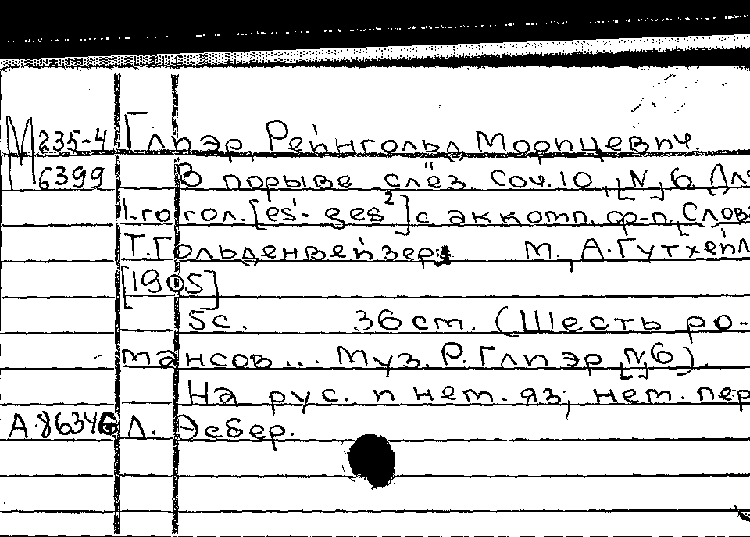 М 235-4 Глиэр, Рейнгольд Морицевич.
6399 В порыве слёз. Соч.10, [N] 6. Для
1-го гол. [es¹- ges²] с аккомп. ф-п., Слова
Т. Гольденвейзер. М., А. Гутхейл
[1905]
5с. 36 cm. (Шесть ро-
мансов... Муз. Р. Глиэр, [N] 6).
На рус. и нем. яз; нем. пер
А.86346 Л. Эсбер.